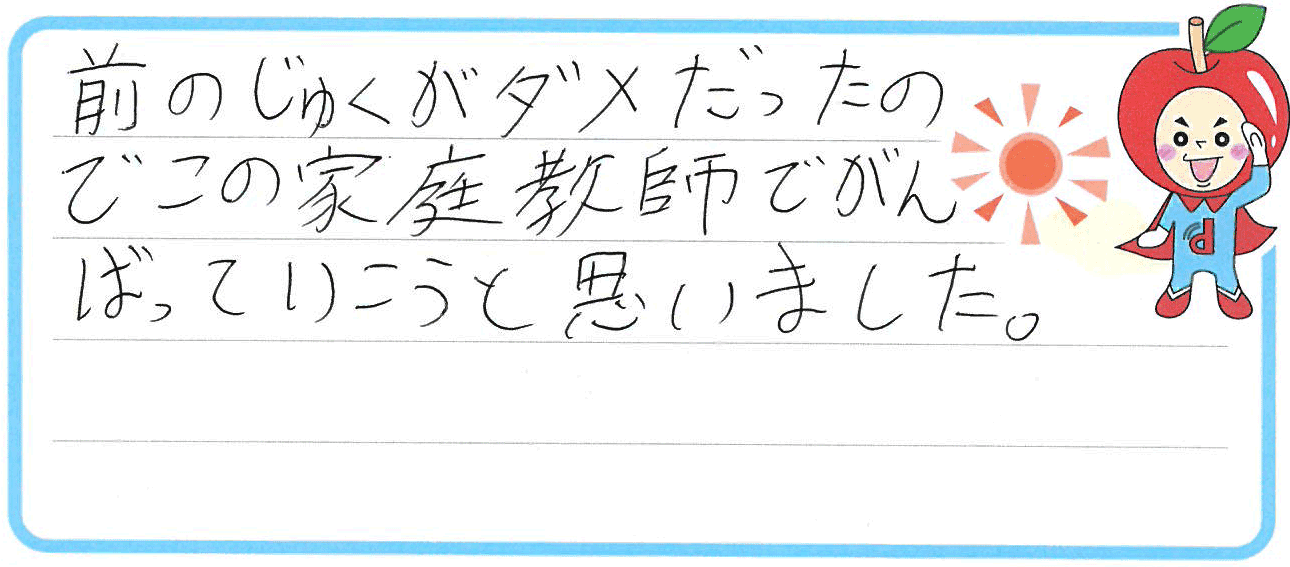 前のじゅくがダメだったの
でこの家庭教師でがん
ばっていこうと思いました。